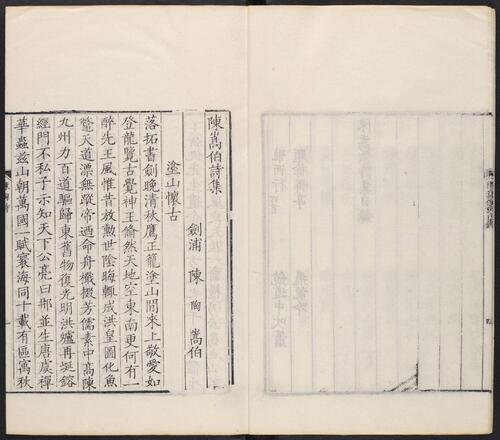 陳嵩伯詩集
劍浦 陳 陶 嵩伯
塗山懷古
落拓書劍晚清秋鷹正籠塗山閒來上敬愛如
登龍覽古覺神王翛然天地空東南更何有一
醉先王風惟昔放勲世陰晦輒成洪皇圖化魚
鼈天道漂無蹤帝迺命舟檝掇芳儒素中高陳
九州力百道驅歸東舊物復光明洪爐再埏鎔
經門不私子示知天下公亮曰那並生唐虞禪
華蟲兹山朝萬國一賦寰海同十載有區寓秋